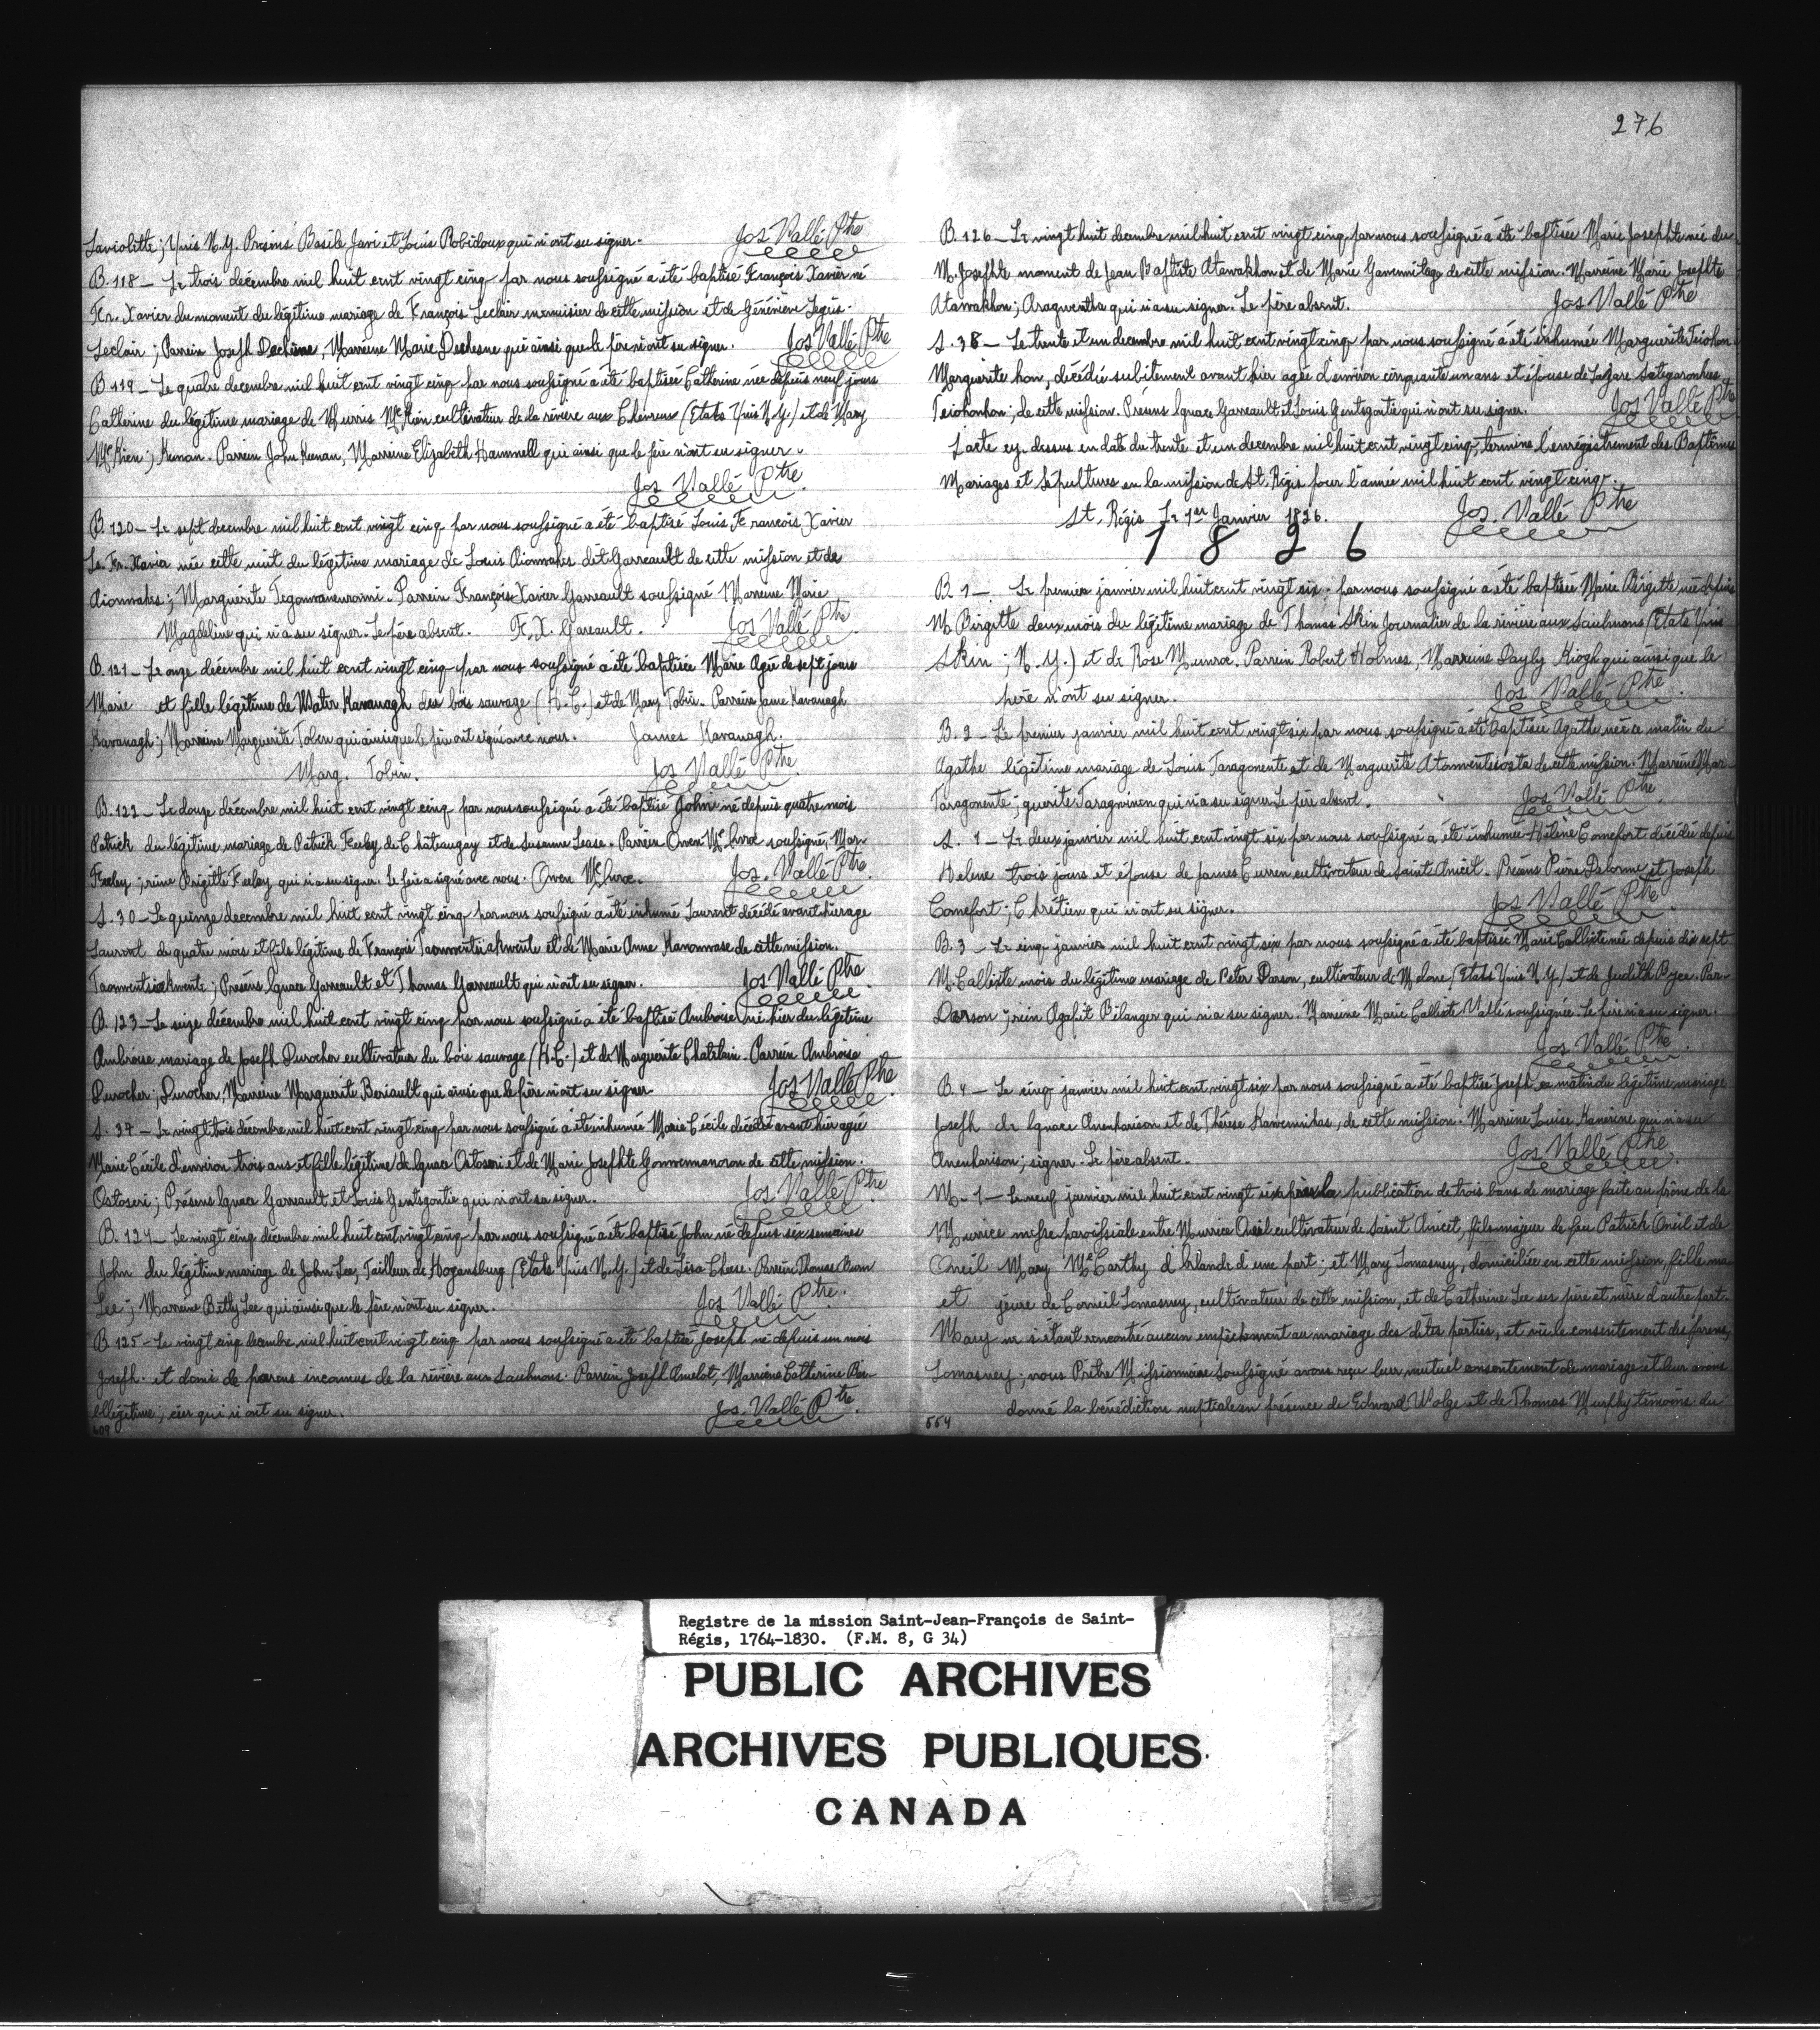 276
Laviolette; Unis N.Y. Présens Basile Javi et Louis Robidoux qui n'ont su signer. Jos Vallé Ptre
B. 118 — Le trois décembre mil huit cent vingt cinq par nous soussigné a été baptisé François Xavier né
Fr. Xavier du moment du légitime mariage de François Leclair menuisier de cette mission et de Généviève Legris.
Leclair; Parrein Joseph Dechêsne, Marreine Marie Dechesne qui ainsi que le père n'ont su signer. Jos Vallé Ptre
B. 119 — Le quatre decembre mil huit cent vingt cinq par nous soussigné a été baptisée Catherine née depuis neuf jours
Catherine du légitime mariage de Murris McKien cultivateur de la rivière aux Chevreux (Etats Unis N.Y.) et de Mary
McKien; Keenan. Parrein John Keenan, Marreine Elizabeth Hammell qui ainsi que le père n'ont su signer.
Jos Vallé Ptre
B. 120 — Le sept decembre mil huit cent vingt cinq par nous soussigné a été baptisé Louis Francois Xavier
Ls. Fr. Xavier née cette nuit du légitime mariage de Louis Aionwahes dit Garreault de cette mission et de
Aionwahes; Marguerite Tegonwaneuroini. Parrein François Xavier Garreault soussigné Marreine Marie
Magdeline qui n'a su signer. Le père absent. F. X. Gareault. Jos Vallé Ptre
B. 121 — Le onze décembre mil huit cent vingt cinq par nous soussigné a été baptisée Marie Agée de sept jours
Marie et fille légitime de Water Kavanagh des bois sauvage (H.C.) et de Mary Tobin. Parrein Jame Kavanagh
Kavanagh; Marreine Marguerite Tobin qui ainsi que le père ont signé avec nous. James Kavanagh.
Marg. Tobin. Jos Vallé Ptre
B. 122 — Le douze décembre mil huit cent vingt cinq par nous soussigné a été baptisé John né depuis quatre mois
Patrick du légitime mariage de Patrick Feeley de Chateaugay et de Susanne Lease. Parrein Owen McLuroe soussigné, Mar-
Feeley; reine Brigitte Feeley qui n'a su signer. Le père a signé avec nous. Owen McLuroe. Jos. Vallé Ptre
S. 30 — Le quinze decembre mil huit cent vingt cinq par nous soussigné a été inhumé Laurent décédé avant hier agé
Laurent de quatre mois et fils légitime de François Taonwentsiakwente et de Marie Anne Kanonwase de cette mission.
Taonwentsiakwente; Présens Ignace Garreault et Thomas Garreault qui n'ont su signer. Jos Vallé Ptre
B. 123 — Le seize décembre mil huit cent vingt cinq par nous soussigné a été baptisé Ambroise né hier du légitime
Ambroise mariage de Joseph Durocher cultivateur du bois sauvage (H.C.) et de Marguerite Chatelain. Parrein Ambroise
Durocher; Durocher, Marreine Marguerite Beriault qui ainsi que le père n'ont su signer Jos Vallé Ptre
S. 37 — Le vingt trois décembre mil huit cent vingt cinq par nous soussigné a été inhumée Marie Cécile décédée avant hier agée
Marie Cécile d'environ trois ans et fille légitime de Ignace Ostoseri et de Marie Josephte Gonwennanoron de cette mission.
Ostoseri; Présens Ignace Garreault et Louis Gentsgontie qui n'ont su signer. Jos Vallé Ptre
B. 124 — Le vingt cinq décembre mil huit cent vingt cinq par nous soussigné a été baptisé John né depuis six semaines
John du légitime mariage de John Lee, Tailleur de Hogansburg (Etats Unis N.Y.) et de Lisa Chease. Parrein Thomas
Lee; Marreine Betty Lee qui ainsi que le père n'ont su signer. Jos Vallé Ptre.
B 125 — Le vingt cinq decembre mil huit cent vingt cinq par nous soussigné a été baptisé Joseph né depuis un mois
Joseph. et demi de parens inconnus de la rivière aux Saulmons. Parrein Joseph Amelot, Marreine Catherine
illégitime; qui n'ont su signer. Jos. Vallé Ptre.
609
B. 126 — Le vingt huit decembre mil huit cent vingt cinq par nous soussigné a été baptisée Marie Josephte née du
M. Josephte moment de Jean Baptiste Atawakhon et de Marie Ganennitago de cette mission. Marreine Marie Josephte
Atawakhon; Aragwentha qui n'a su signer. Le père absent. Jos Vallé Ptre
S. 38 — Le trente et un decembre mil huit cent vingt cinq par nous soussigné a été inhumée Marguerite Teiohon
Marguerite hon, décédée subitement avant hier agée d'environ cinquante un ans et épouse de Lazare Sategaronhies
Teiohonhon; de cette mission. Présens Ignace Garreault et Louis Gentsgontie qui n'ont su signer. Jos Vallé Ptre
L'acte cy-dessus en date du trente et un decembre mil huit cent vingt cinq, termine l'enregistrement des Baptêmes
Mariages et Sépultures en la mission de St. Régis pour l'année mil huit cent vingt cinq.
St. Régis Le 1er Janvier 1826. Jos. Vallé Ptre
1 8 2 6
B. 1 — Le premier janvier mil huit cent vingt six par nous soussigné a été baptisée Marie Birgitte née depuis
M Birgitte deux mois du légitime mariage de Thomas Skin Journalier de la rivière aux Saulmons (Etats Unis
Skin; N.Y.) et de Rose Munroe. Parrein Robert Holmes, Marreine Payly Kiogh qui ainsi que le
père n'ont su signer. Jos Vallé Ptre.
B. 2 — Le premier janvier mil huit cent vingt six par nous soussigné a été baptisée Agathe née ce matin du
Agathe légitime mariage de Louis Taragonente et de Marguerite Atonwentsiosta de cette mission. Marreine Mar-
Taragonente; guerite Taragwinen qui n'a su signer. Le père absent. Jos Vallé Ptre.
S. 1 — Le deux janvier mil huit cent vingt six par nous soussigné a été inhumée Hélène Comefort décédée depuis
Helene trois jours et épouse de James Curren cultivateur de Saint Anicet. Présens Pierre Delorme et Joseph
Comefort; Chrétien qui n'ont su signer. Jos Vallé Ptre
B. 3 — Le cinq janvier mil huit cent vingt six par nous soussigné a été baptisée Marie Calliste née depuis dix sept
M. Calliste mois du légitime mariage de Peter Darson, cultivateur de Malone, (Etats Unis N.Y.) et de Judith Royer. Par-
Darson; rein Agapit Bélanger qui n'a su signer. Marreine Marie Calliste Vallé soussignée. Le père n'a su signer.
Jos Vallé Ptre.
B. 4 — Le cinq janvier mil huit cent vingt six par nous soussigné a été baptisé Joseph ce matin du légitime mariage
Joseph de Ignace Anenharison et de Thérèse Kaweninhas, de cette mission. Marreine Louise Kanerine qui n'a su
Anenharison; signer. Le père absent. Jos Vallé Ptre
M. 1 — Le neuf janvier mil huit cent vingt six après la publication de trois bans de mariage faite au prône de la
Murrice messe paroissiale entre Murrice Oneil cultivateur de Saint Anicet, fils majeur de feu Patrick Oneil et de
Oneil Mary McCarthy d'Irlande d'une part; et Mary Lomasney, domiciliée en cette mission fille ma
et jeure de Corneil Lomasney, cultivateur de cette mission, et de Catherine Lee ses père et mère d'autre part.
Mary ne s'étant rencontré aucun empêchement au mariage des dites parties, et vu le consentement des parens,
Lomasney; nous Prêtre Missionnaire soussigné avons reçu leur mutuel consentement de mariage et leur avons
donné la bénédiction nuptiale en présence de Edward Wolge et de Thomas Murphy témoins du
554
Registre de la mission Saint-Jean-François de Saint-
Régis, 1764-1830. (F.M. 8, G 34)
PUBLIC ARCHIVES
ARCHIVES PUBLIQUES
CANADA